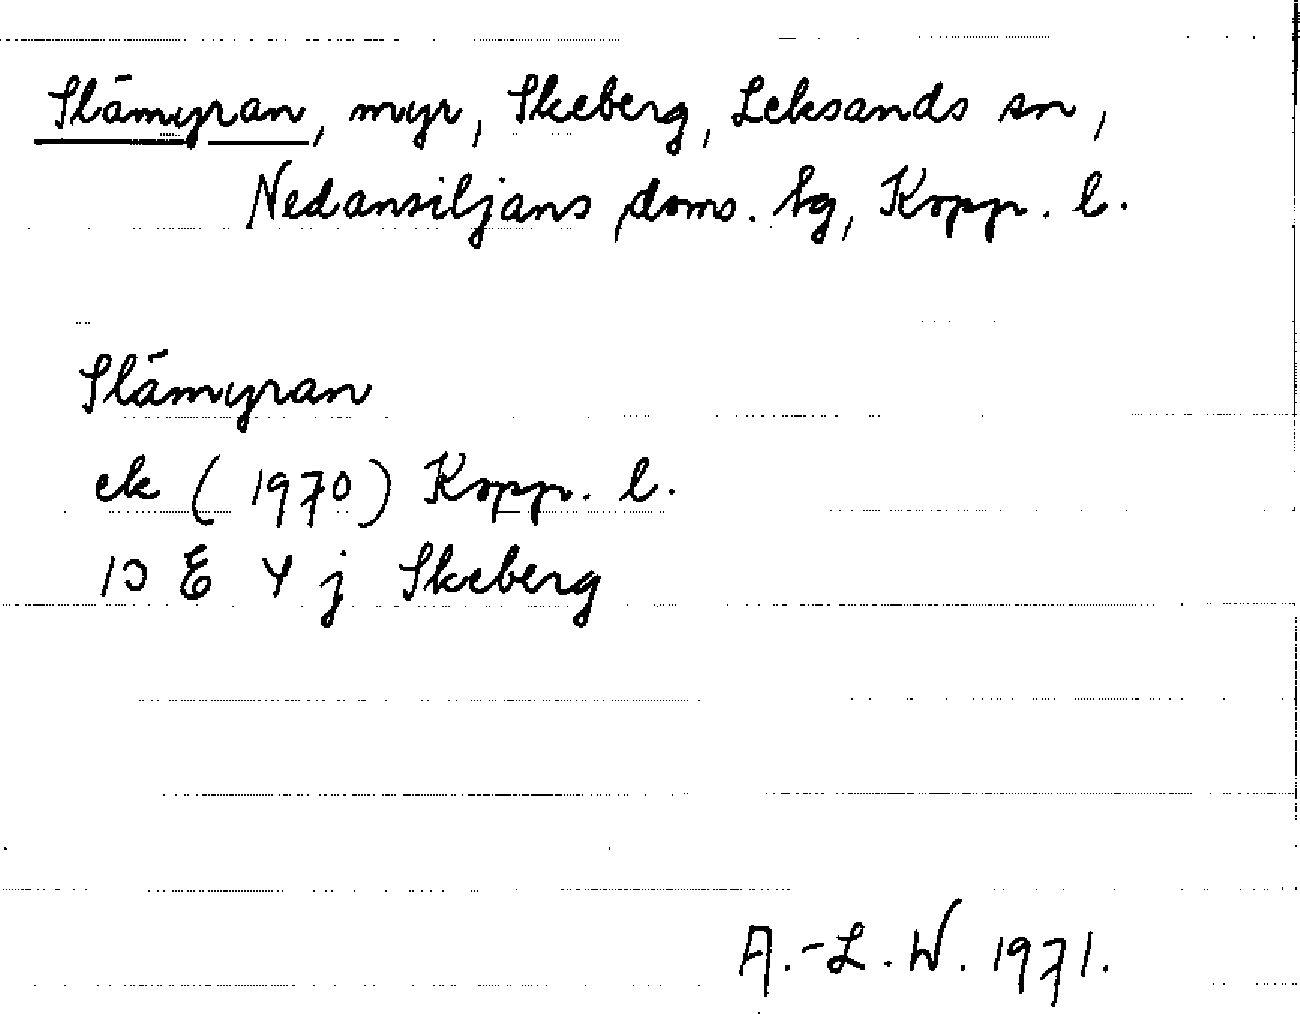 Slämyran, myr, Skeberg, Leksands sn,
Nedansiljans doms. hg, Kopp. l.
Slämyran
ek (1970) Kopp. l.
13 E 4 j Skeberg
A.-L. W. 1971.